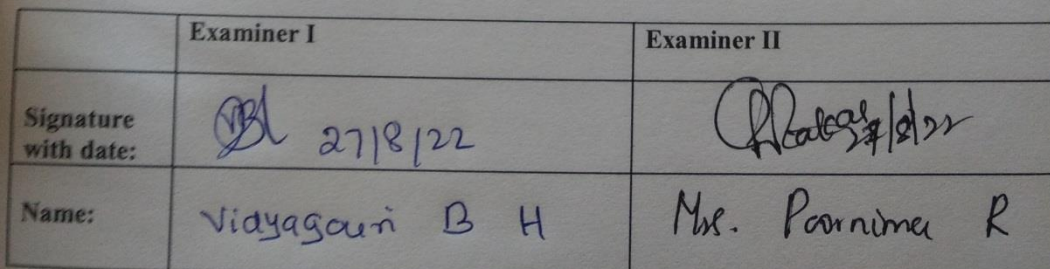 Examiner I Examiner II
Signature
with date: 27/8/22 27/8/22
Name: Vidyagouri B H Mrs. Poornima R